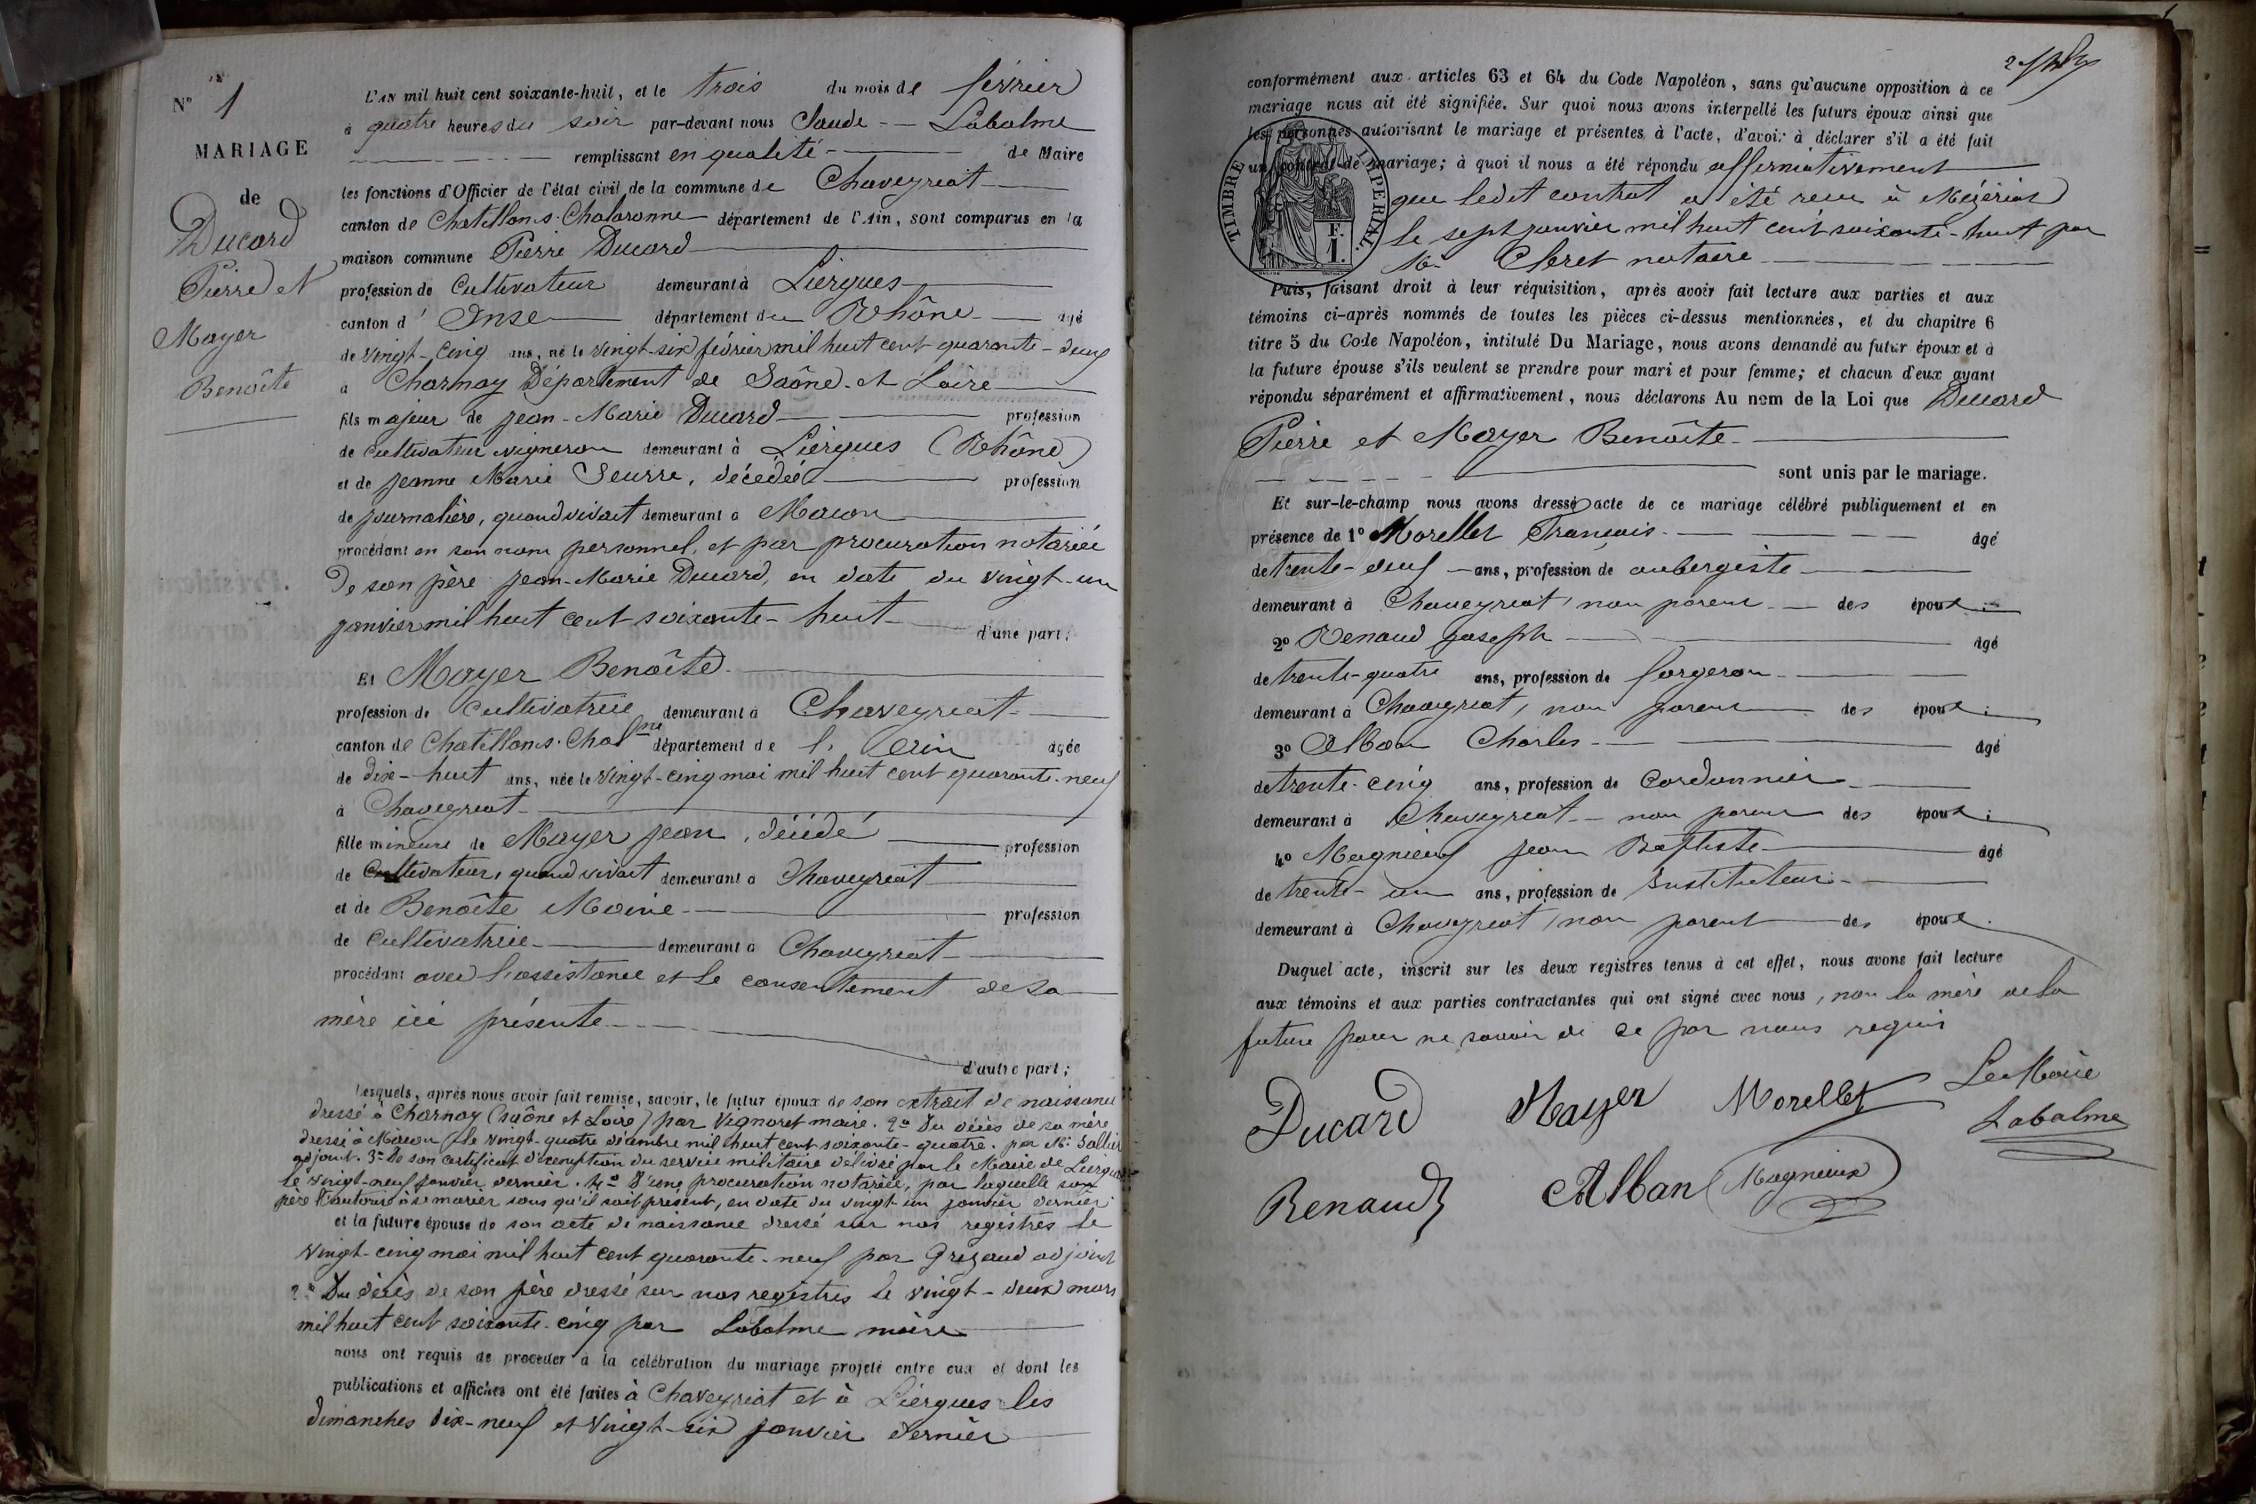 N° 1
MARIAGE
de
Ducard
Pierre et
Mayer
Benoîte
L'AN mil huit cent soixante-huit, et le trois du mois de février
à quatre heures du soir par-devant nous Claude Labalme
remplissant en qualité de Maire
les fonctions d'Officier de l'état civil de la commune de Chaveyriat
canton de Chatillon s. Chalaronne département de l'Ain, sont comparus en la
maison commune Pierre Ducard
profession de Cultivateur demeurant à Liergues
canton d' Anse département du Rhône âgé
de vingt-cinq ans, né le vingt-six février mil huit cent quarante-deux
à Charnay Département de Saône-et-Loire
fils majeur de Jean-Marie Ducard profession
de cultivateur vigneron demeurant à Liergues (Rhône)
et de Jeanne Marie Seurre, décédée profession
de journalière, quand vivait demeurant à Macon
procédant en son nom personnel, et par procuration notariée
de son père Jean-Marie Ducard, en date du vingt-un
janvier mil huit cent soixante-huit d'une part;
Et Mayer Benoîte
profession de Cultivatrice demeurant à Chaveyriat
canton de Chatillon s. Chal ne département de l'Ain âgée
de dix-huit ans, née le vingt-cinq mai mil huit cent quarante-neuf
à Chaveyriat
fille mineure de Mayer Jean, décédé profession
de Cultivateur, quand vivait demeurant à Chaveyriat
et de Benoîte Moine profession
de Cultivatrice demeurant à Chaveyriat
procédant avec l'assistance et le consentement de sa
mère ici présente
d'autre part;
Lesquels, après nous avoir fait remise, savoir, le futur époux de son extrait de naissance
dressé à Charnay (Saône et Loire) par Vignoret maire. 2° Du décès de sa mère
dressé à Macon le vingt-quatre décembre mil huit cent soixante-quatre. par Mr
adjoint. 3° De son certificat d'exemption du service militaire délivré par le Maire de Liergues
le vingt-neuf janvier dernier. 4° D'une procuration notariée, par laquelle son
père l'autorise à se marier sans qu'il soit présent, en date du vingt-un janvier dernier
et la future épouse de son acte de naissance dressé sur nos registres le
vingt-cinq mai mil huit cent quarante-neuf par Grezaud adjoint
2° Du décès de son père dressé sur nos registres le vingt-deux mars
mil huit cent soixante-cinq par Labalme maire
nous ont requis de procéder à la célébration du mariage projeté entre eux et dont les
publications et affiches ont été faites à Chaveyriat et à Liergues les
dimanches dix-neuf et vingt-six janvier dernier
conformément aux articles 63 et 64 du Code Napoléon, sans qu'aucune opposition à ce
mariage nous ait été signifiée. Sur quoi nous avons interpellé les futurs époux ainsi que
les personnes autorisant le mariage et présentes à l'acte, d'avoir à déclarer s'il a été fait
un contrat de mariage; à quoi il nous a été répondu affirmativement
que ledit contrat a été reçu à Mézériat
le sept janvier mil huit cent soixante-huit par
Me Cleret notaire
TIMBRE IMPERIAL.
F.
1.
Puis, faisant droit à leur réquisition, après avoir fait lecture aux parties et aux
témoins ci-après nommés de toutes les pièces ci-dessus mentionnées, et du chapitre 6
titre 5 du Code Napoléon, intitulé Du Mariage, nous avons demandé au futur époux et à
la future épouse s'ils veulent se prendre pour mari et pour femme; et chacun d'eux ayant
répondu séparément et affirmativement, nous déclarons Au nom de la Loi que Ducard
Pierre et Mayer Benoîte
sont unis par le mariage.
Et sur-le-champ nous avons dressé acte de ce mariage célébré publiquement et en
présence de 1° Morellet François âgé
de trente-neuf ans, profession de aubergiste
demeurant à Chaveyriat, non parent des époux;
2° Renaud Joseph âgé
de trente-quatre ans, profession de forgeron
demeurant à Chaveyriat, non parent des époux;
3° Alban Charles âgé
de trente-cinq ans, profession de Cordonnier
demeurant à Chaveyriat non parent des époux;
4° Magnieux Jean Baptiste âgé
de trente-un ans, profession de Instituteur
demeurant à Chaveyriat, non parent des époux.
Duquel acte, inscrit sur les deux registres tenus à cet effet, nous avons fait lecture
aux témoins et aux parties contractantes qui ont signé avec nous, non la mère de la
future pour ne savoir de ce par nous requis
Ducard Mayer Morellet Le Maire
Labalme
Renaud Alban Magnieux